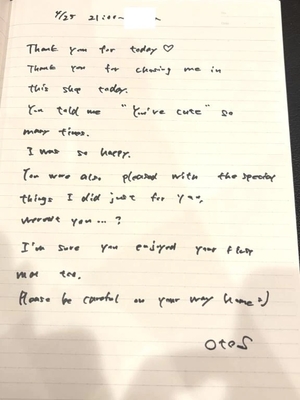 9/25 21:00~
Thank you for today ♡
Thank you for chosing me in
this shop today.
You told me "You're cute" so
many times.
I was so happy.
You were also pleased with the special
things I did just for you,
weren't you...?
I'm sure you enjoyed your first
too.
Please be careful on your way home =)